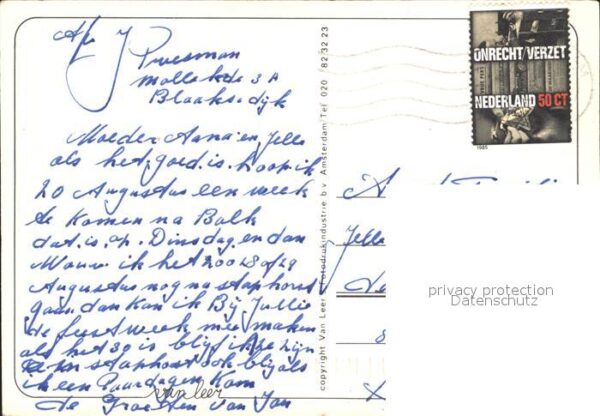 Afz J Pruesman
Mollekade 3 A
Blaaksedijk
Moeder Anna en Jelle
als het goed is hoop ik
20 Augustus een week
te komen na Balk
dat is op Dinsdag en dan
Wouw ik het zoo 28 of 29
Augustus nog na staphorst
gaan dan kan ik Bij Jullie
de feestweek mee maken
als het zo is blijf ik
staphorst ook blij als
ik een Paar dagen kom
de Groetten van Jan
van leer
copyright Van Leer Fotodrukindustrie b.v. Amsterdam Tel 020 82 32 23
ONRECHT/VERZET
NEDERLAND 50 CT
1985
Jelle
privacy protection
Datenschutz